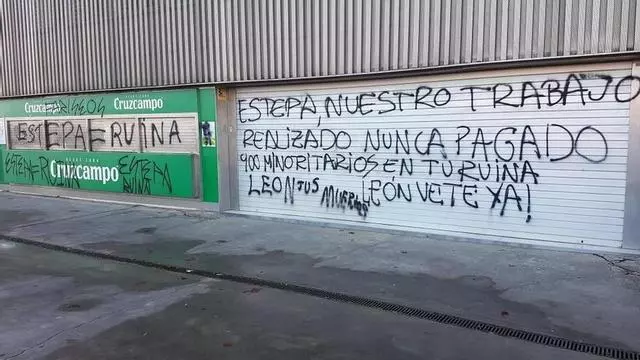 Cruzcampo
Cruzcampo
ESTEPA ERUINA
ESTEPA RUINA
Cruzcampo
ESTEPA, NUESTRO TRABAJO
REALIZADO NUNCA PAGADO
900 MINORITARIOS EN TU RUINA
LEON TUS MUERTOS LEÓN VETE YA!